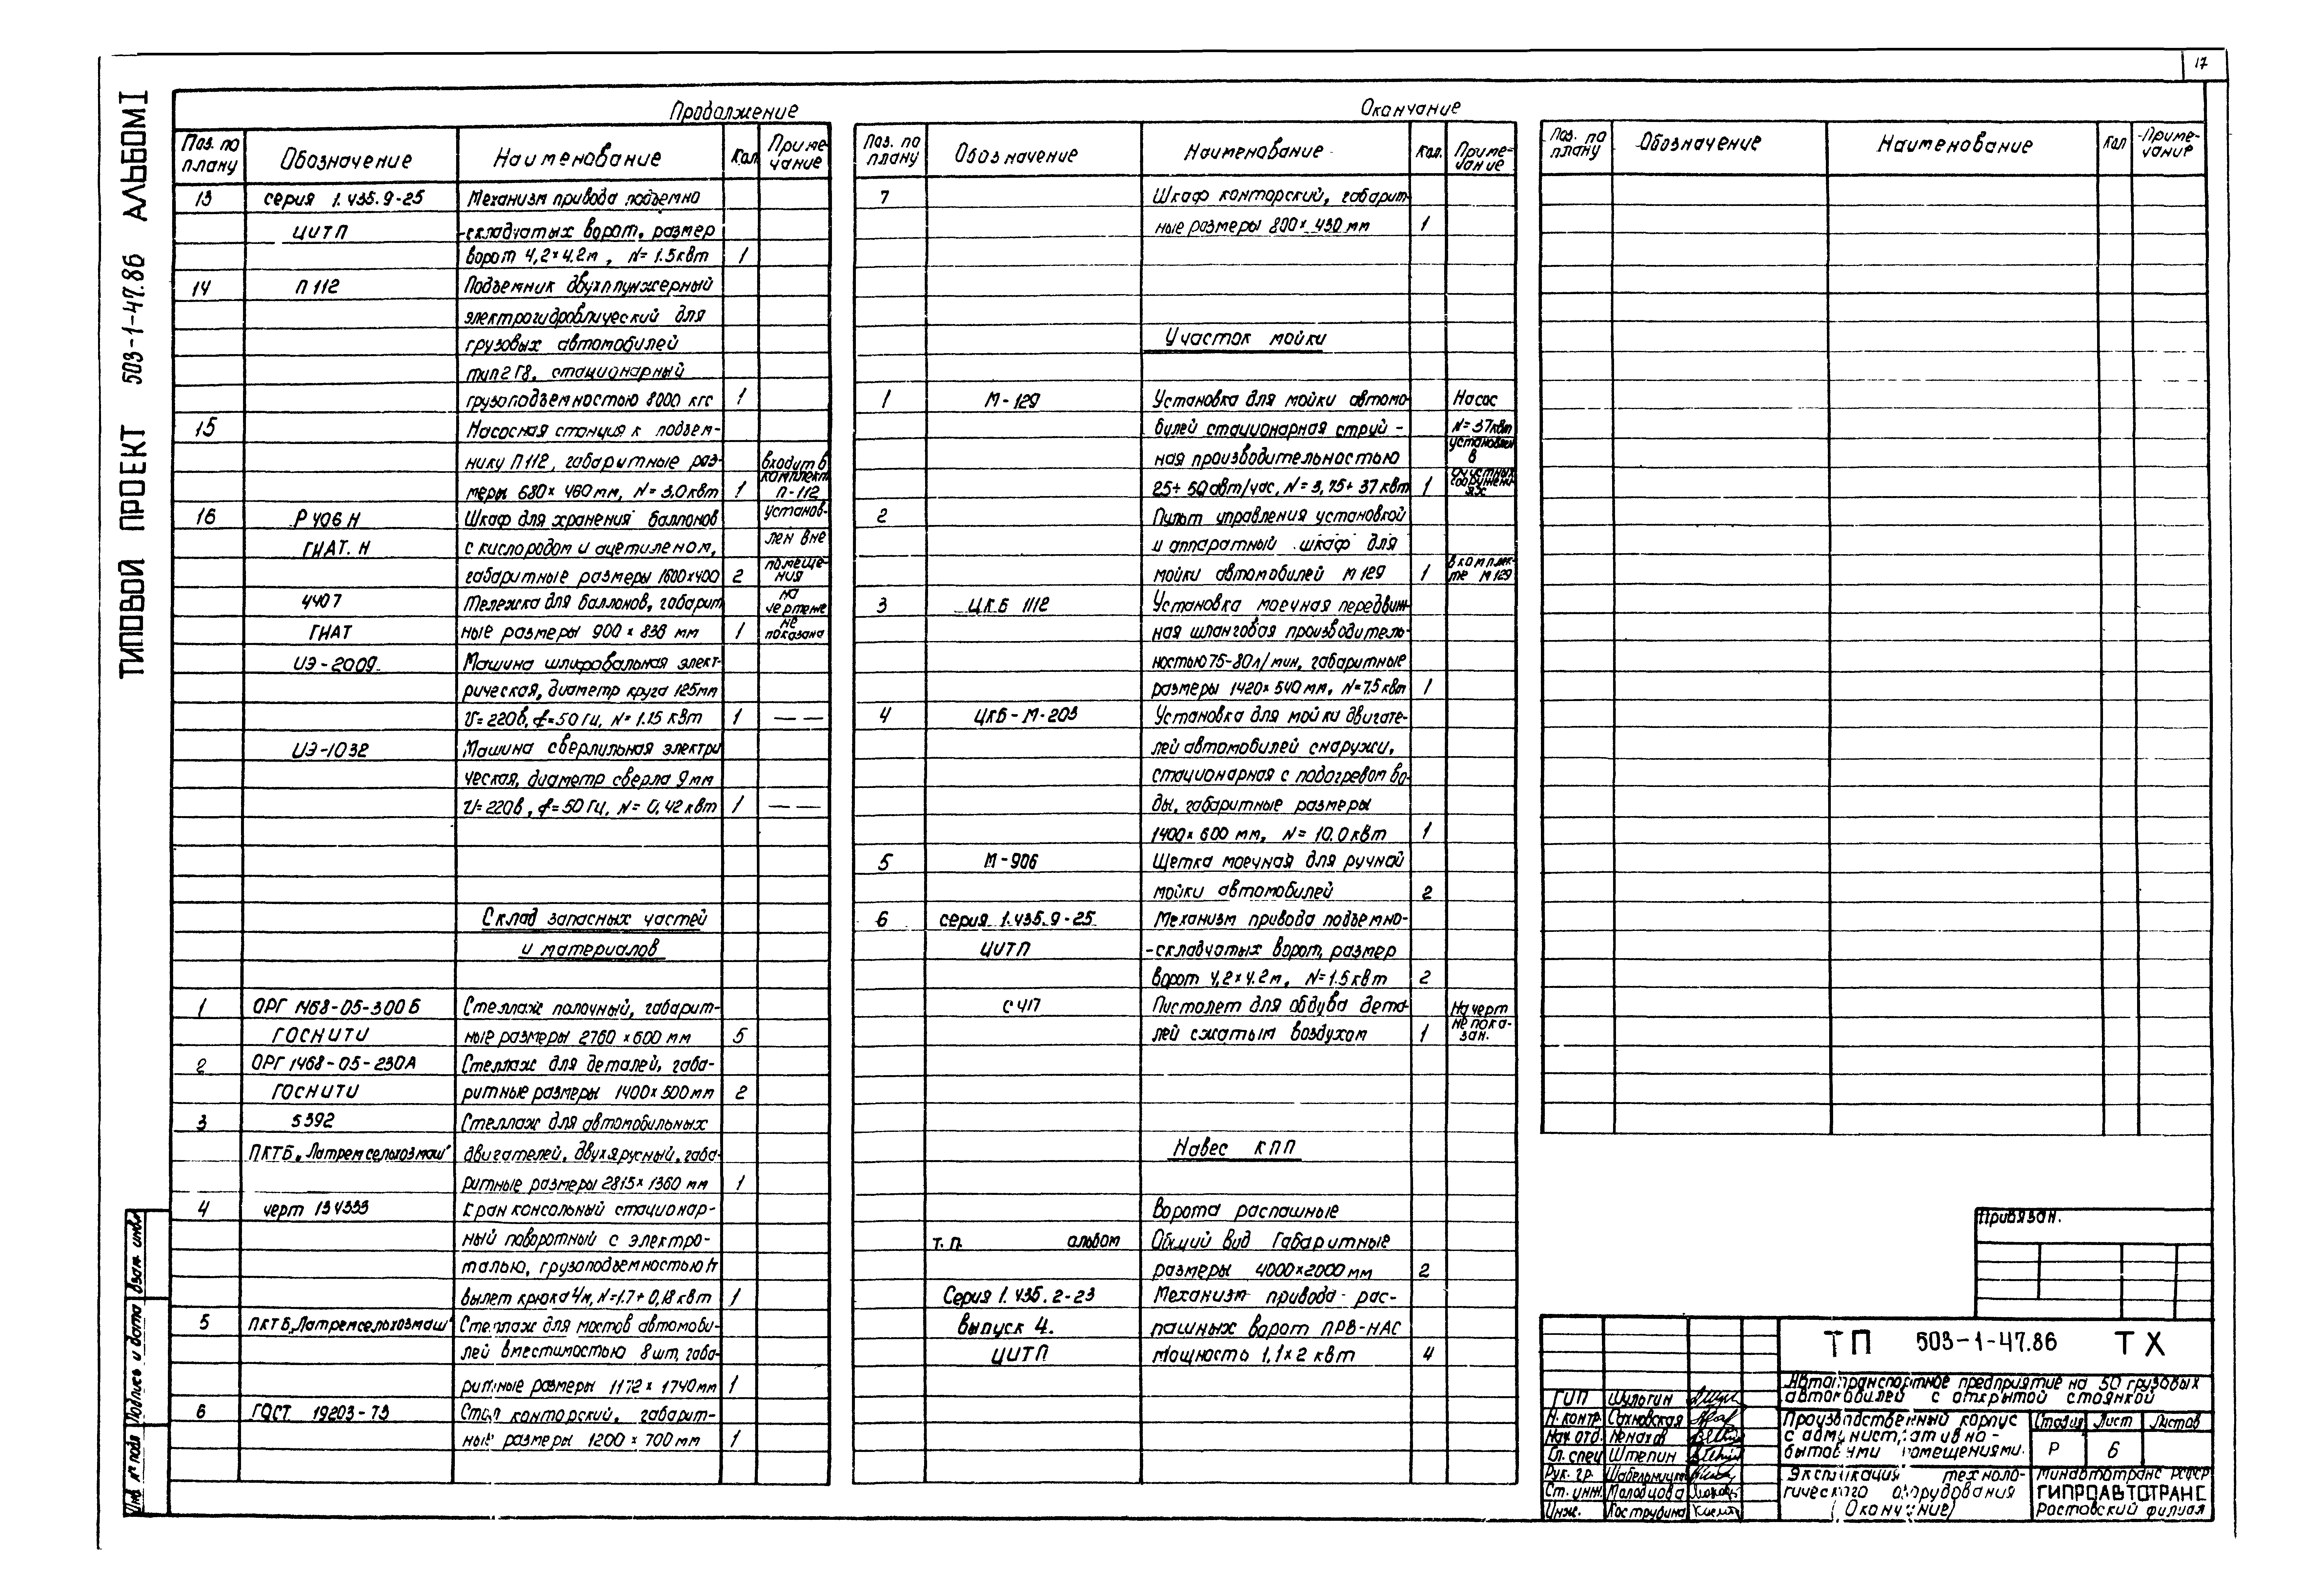 17
ТИПОВОЙ ПРОЕКТ 503-1-47.86 АЛЬБОМ I
Продолжение
Поз. по плану Обозначение Наименование Кол Приме-чание
13 серия 1.435.9-25 Механизм привода подъемно
ЦИТП -складчатых ворот, размер
ворот 4,2×4.2м, N= 1.5квт 1
14 П 112 Подъемник двухплунжерный
электрогидравлический для
грузовых автомобилей
тип 2Г8, стационарный
грузоподъемностью 8000 кгс 1
15 Насосная станция к подъем-
нику П112, габаритные раз- входит в
меры 680×460мм, N=3,0квт 1 комплект П-112
16 Р 406 Н Шкаф для хранения баллонов установ-
ГНАТ. Н с кислородом и ацетиленом, лен вне
габаритные размеры 1600×400 2 помеще-ния
4407 Тележка для баллонов, габарит на чертеже
ГНАТ ные размеры 900×838 мм 1 не показана
ИЭ-2009 Машина шлифовальная элект-
рическая, диаметр круга 125мм
U=220в, f=50 Гц, N=1.15 квт 1 — —
ИЭ-1032 Машина сверлильная электри
ческая, диаметр сверла 9мм
U=220в, f=50 Гц, N= 0,42 квт 1 — —
Склад запасных частей
и материалов
1 ОРГ 1468-05-300Б Стеллаж полочный, габарит-
ГОСНИТИ ные размеры 2760×600 мм 5
2 ОРГ 1468-05-230А Стеллаж для деталей, габа-
ГОСНИТИ ритные размеры 1400×500мм 2
3 5392 Стеллаж для автомобильных
ПКТБ „Латремсельхозмаш" двигателей, двухярусный, габа-
ритные размеры 2815×1360 мм 1
4 черт 134333 Кран консольный стационар-
ный поворотный с электро-
талью, грузоподъемностью 1т
вылет крюка 4м, N=1.7+0,18квт 1
5 ПКТБ „Латремсельхозмаш" Стеллаж для мостов автомоби-
лей вместимостью 8шт, габа-
ритные размеры 1172×1740мм 1
6 ГОСТ 19203-73 Стол конторский, габарит-
ные размеры 1200×700мм 1
Окончание
Поз. по плану Обозначение Наименование Кол. Приме-чание
7 Шкаф конторский, габарит-
ные размеры 800×430 мм 1
Участок мойки
1 М-129 Установка для мойки автомо- Насос
билей стационарная струй- N=37квт
ная производительностью установлен в
25÷50авт/час, N=3,75+37квт 1 очистных сооружени-ях
2 Пульт управления установкой
и аппаратный шкаф для
мойки автомобилей М129 1 в комплек-те М129
3 ЦКБ 1112 Установка моечная передвиж-
ная шланговая производитель-
ностью 75-80л/мин, габаритные
размеры 1420×540мм, N=7.5квт 1
4 ЦКБ-М-203 Установка для мойки двигате-
лей автомобилей снаружи,
стационарная с подогревом во-
ды, габаритные размеры
1400×600 мм, N= 10.0квт 1
5 М-906 Щетка моечная для ручной
мойки автомобилей 2
6 серия 1.435.9-25 Механизм привода подъемно-
ЦИТП -складчатых ворот, размер
ворот 4,2×4.2м, N=1.5квт 2
С 417 Пистолет для обдува дета- На черт
лей сжатым воздухом 1 не пока-зан.
Навес КПП
Ворота распашные
т. п. альбом Общий вид Габаритные
размеры 4000×2000мм 2
Серия 1.435.2-23 Механизм привода рас-
выпуск 4. пашных ворот ПРВ-НАС
ЦИТП мощность 1,1×2 квт 4
Поз. по плану Обозначение Наименование Кол Приме-чание
Привязан.
ТП 503-1-47.86 ТХ
Автотранспортное предприятие на 50 грузовых
автомобилей с открытой стоянкой
ГИП Шульгин
Н. контр. Сахновская
Нач. отд. Ненахов
Гл. спец Штепин
Рук. гр.
Ст. инж. Молодцова
Инж. Кострубина
Производственный корпус
с административно-
бытовыми помещениями.
Стадия Лист Листов
Р 6
Экспликация техноло-
гического оборудования
(Окончание)
Минавтотранс РСФСР
ГИПРОАВТОТРАНС
Ростовский филиал
Инв. № подл Подпись и дата Взам. инв.